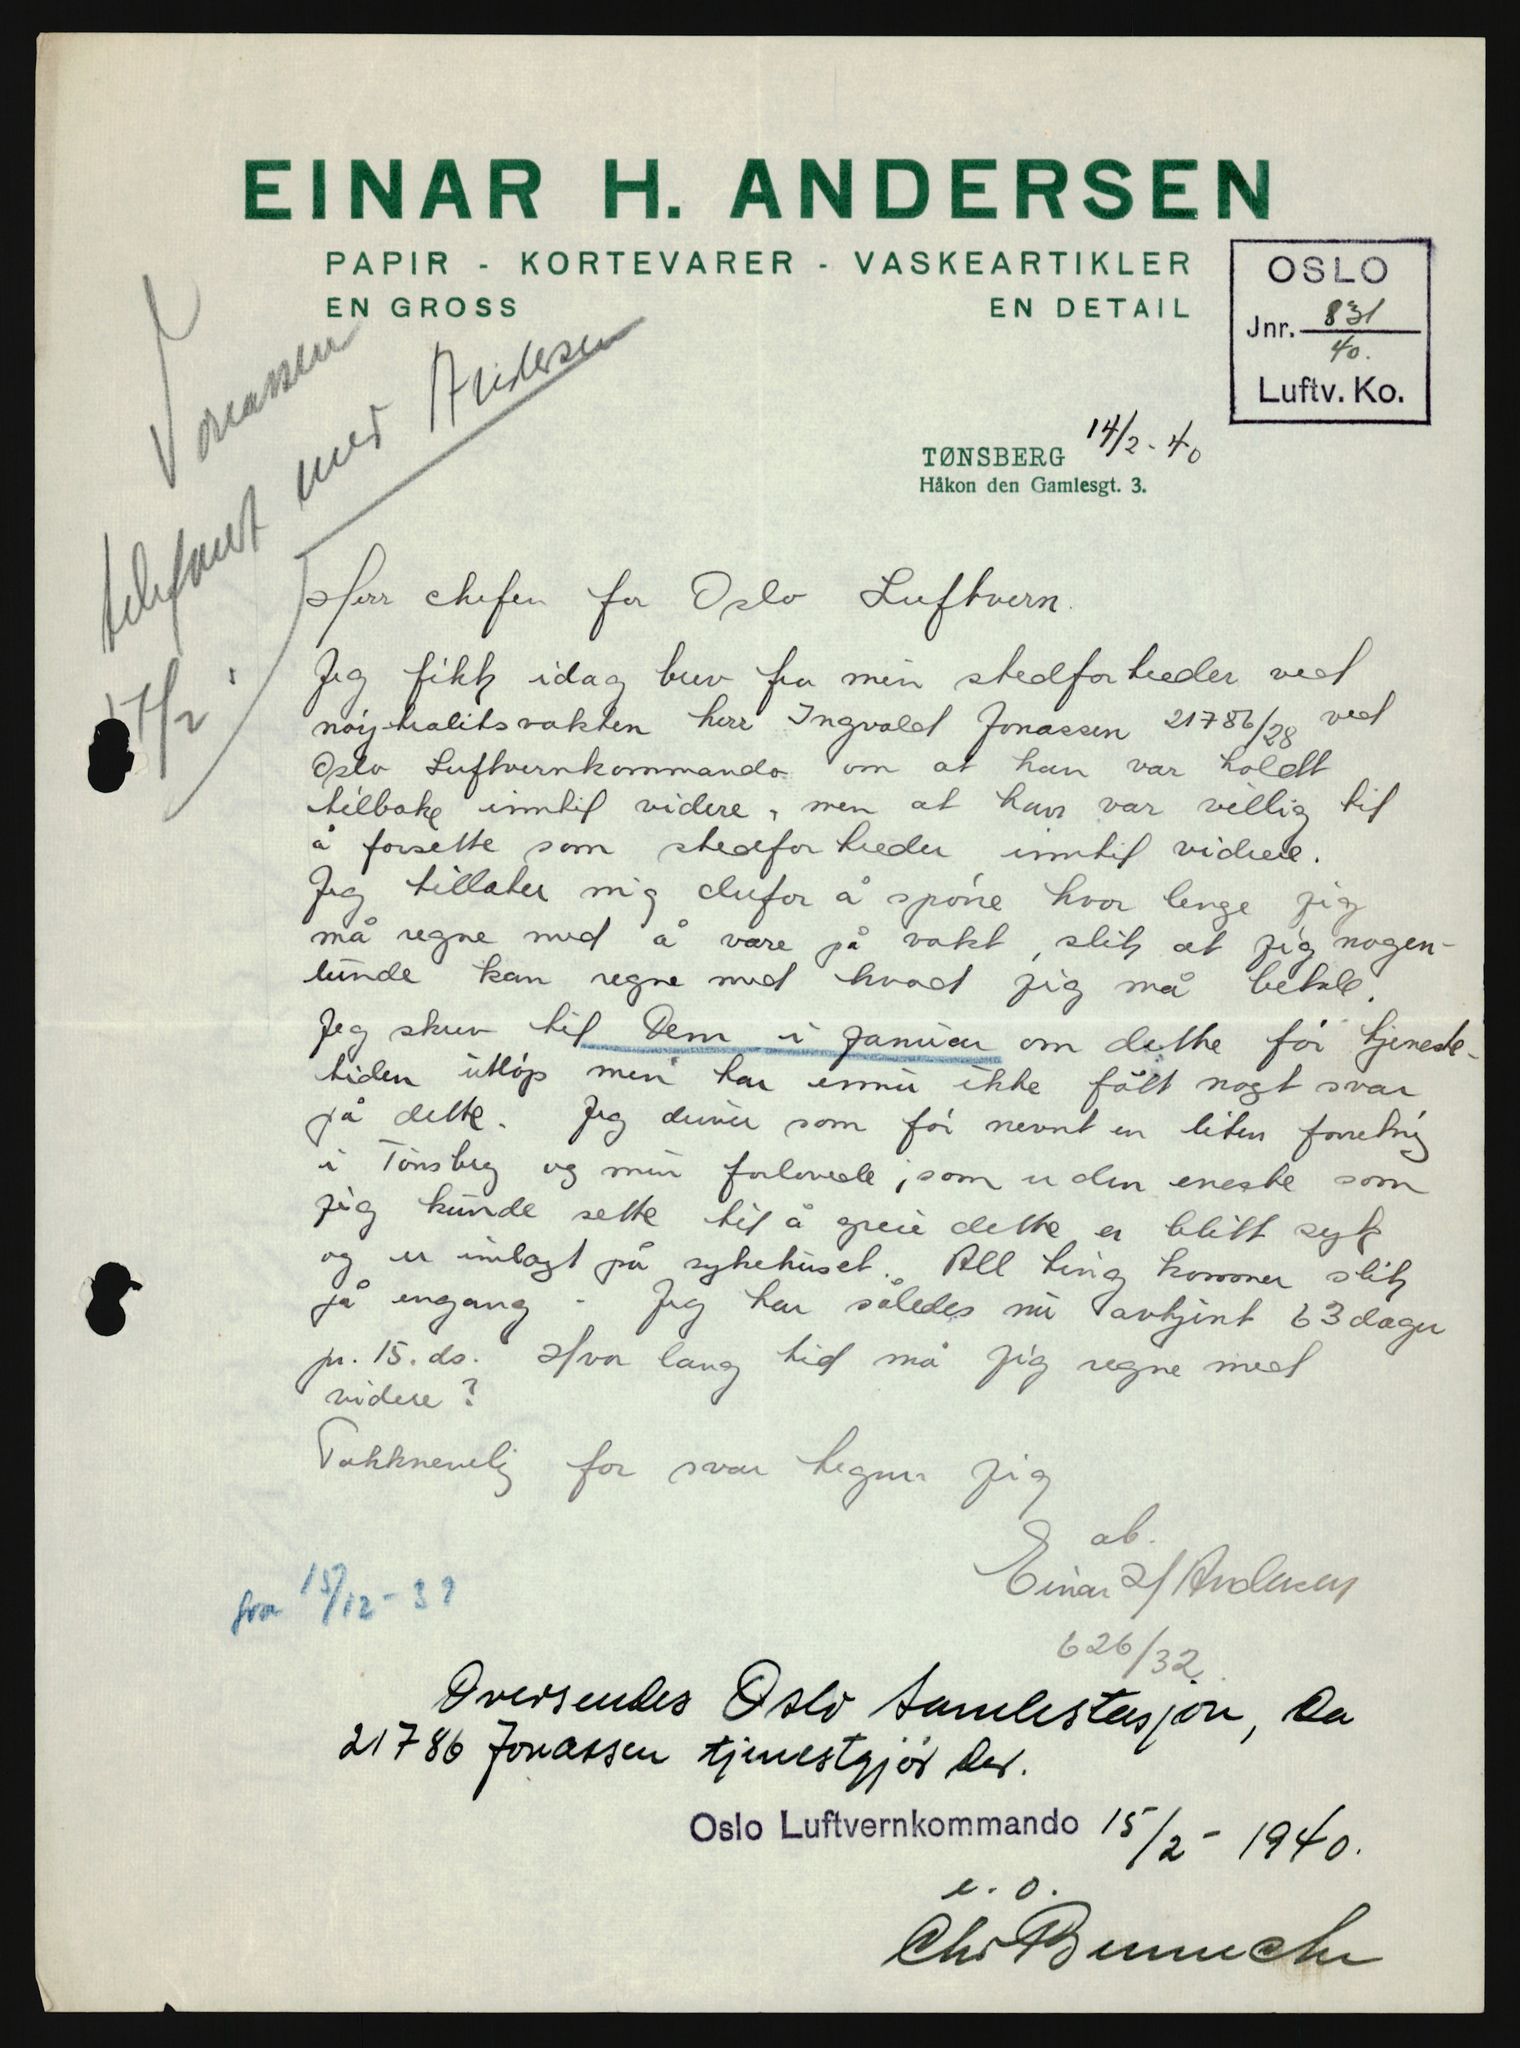 EINAR H. ANDERSEN
PAPIR - KORTEVARER - VASKEARTIKLER
EN GROSS EN DETAIL
OSLO
Jnr. 831
40.
Luftv. Ko.
Jonassen
telefonert med Andersen
17/2
TØNSBERG 14/2-40
Håkon den Gamlesgt. 3.
Herr chefen for Oslo Luftvern.
Jeg fikk idag brev fra min stedfortreder ved
nøytralitsvakten herr Ingvald Jonassen 21786/28 ved
Oslo Luftvernkommando om at han var holdt
tilbake inntil videre, men at han var villig til
å forsette som stedfortreder inntil videre.
Jeg tillater mig derfor å spøre hvor lenge jeg
må regne med å være på vakt, slik at jeg nogen-
lunde kan regne med hvad jeg må betale.
Jeg skrev til Dem i januar om dette før tjeneste-
tiden utløp men har ennu ikke fått nogt svar
på dette. Jeg driver som før nevnt en liten forretnig
i Tønsberg og min forlovede, som er den eneste som
jeg kunde sette til å greie dette er blitt syk
og er innlagt på sykehuset. All ting kommer slik
på engang - Jeg har således nu avtjent 63 dager
pr. 15. ds. Hvor lang tid må jeg regne med
videre?
Takknemlig for svar tegner jeg
ab.
Einar H Andersen
626/32
fra 15/12-39
Oversendes Oslo Samlestasjon, da
21786 Jonassen tjenestgjør der.
Oslo Luftvernkommando 15/2-1940.
e. o.
Chr